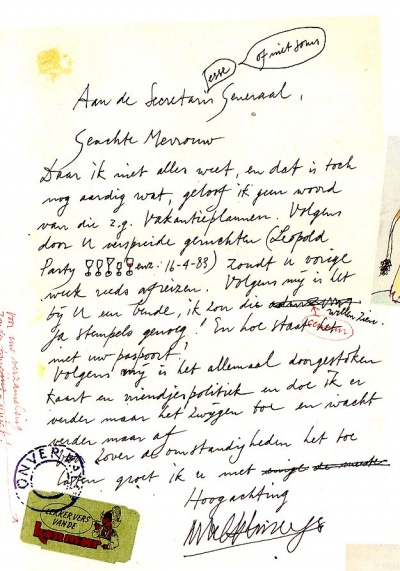 of niet soms
esse
Aan de Secretaris Generaal,
Geachte Mevrouw
Daar ik niet alles weet, en dat is toch
nog aardig wat, geloof ik geen woord
van die z.g. vakantieplannen. Volgens
door U verspreide geruchten (Leopold
Party !!!!! enz. 16-4-83) zoudt U vorige
week reeds afreizen. Volgens mij is het
bij U een bende, ik zou die willen zien.
Ja stempels genoeg! En hoe staat
met uw paspoort?
Volgens mij is het allemaal doorgestoken
kaart en vriendjespolitiek en doe ik er
verder maar het zwijgen toe en wacht
verder maar af
Zover de omstandigheden het toe
laten groet ik U met
Hoogachting
ONVER
LEKKER VERS
VAN DE